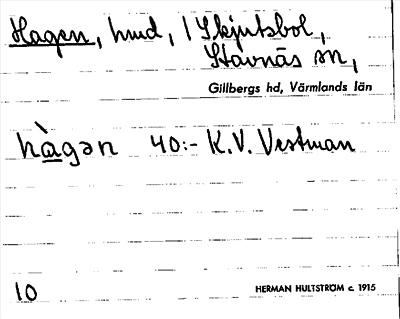 Hagen, hmd, 1 Skjutsbol,
Stavnäs sn,
Gillbergs hd, Värmlands län
hàgən 40:- K.V. Vestman
10
HERMAN HULTSTRÖM c. 1915